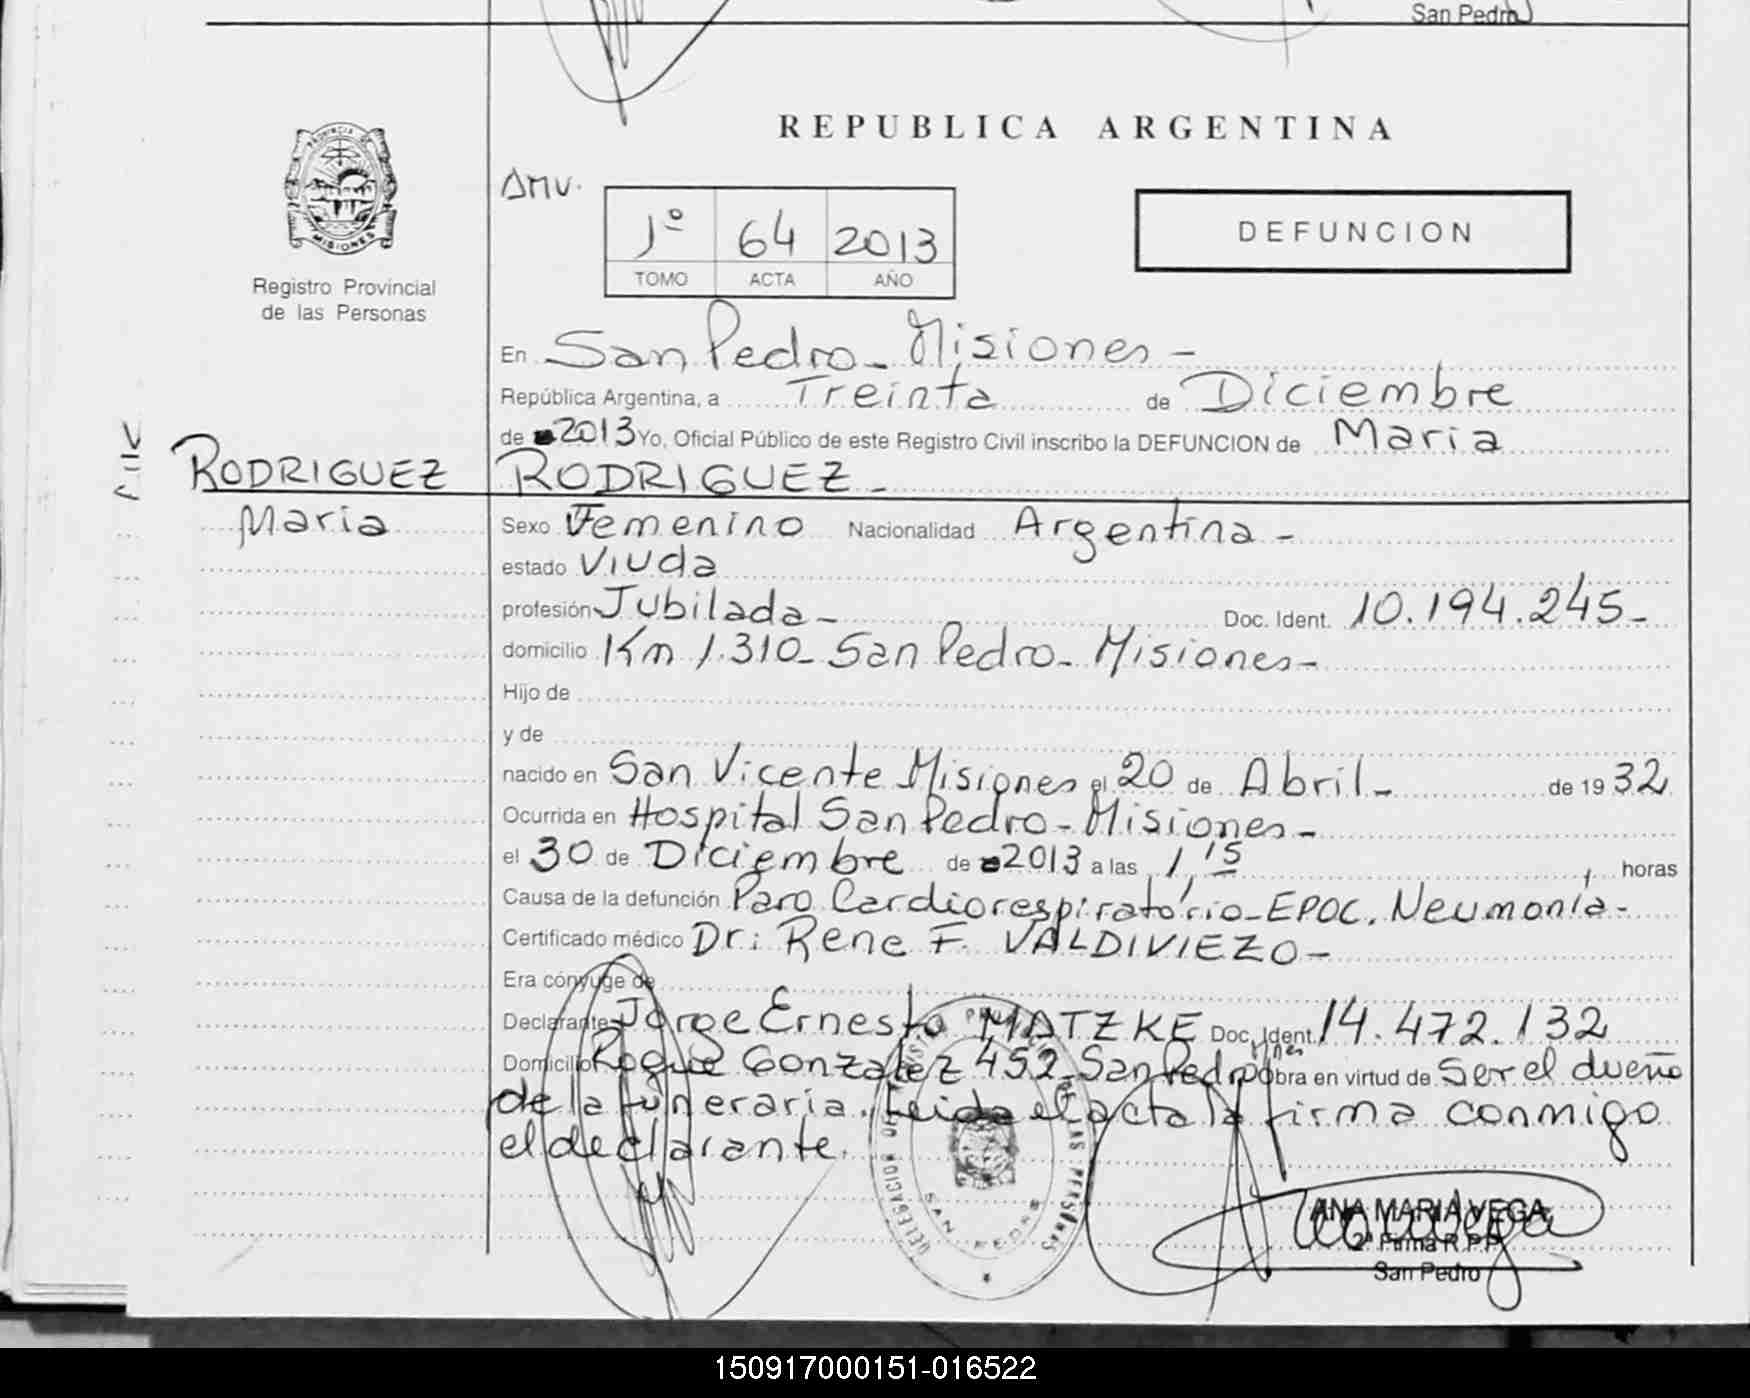 San Pedro
PROVINCIA DE
MISIONES
Registro Provincial
de las Personas
REPUBLICA ARGENTINA
AMV.
1º 64 2013
TOMO ACTA AÑO
DEFUNCION
En San Pedro - Misiones -
República Argentina, a Treinta de Diciembre
de 2013 Yo, Oficial Público de este Registro Civil inscribo la DEFUNCION de Maria
RODRIGUEZ RODRIGUEZ -
Maria Sexo Femenino Nacionalidad Argentina -
estado Viuda
profesión Jubilada - Doc. Ident. 10.194.245 -
domicilio Km 1.310 - San Pedro - Misiones -
Hijo de
y de
nacido en San Vicente Misiones el 20 de Abril - de 1932
Ocurrida en Hospital San Pedro - Misiones -
el 30 de Diciembre de 2013 a las 1,15 horas
Causa de la defunción Paro Cardiorespiratório - EPOC. Neumonía -
Certificado médico Dr: Rene F. VALDIVIEZO -
Era cónyuge de
Declarante Jorge Ernesto MATZKE Doc. Ident. 14.472.132
Domicilio Roque Gonzalez 452 - San Pedro Mnes Obra en virtud de Ser el dueño
de la funeraria. Leida el acta la firma conmigo
el declarante.
DELEGACION REGISTRO PROVINCIAL DE LAS PERSONAS
SAN PEDRO
ANA MARIA VEGA
2ª Firma R.P.P.
San Pedro
150917000151-016522